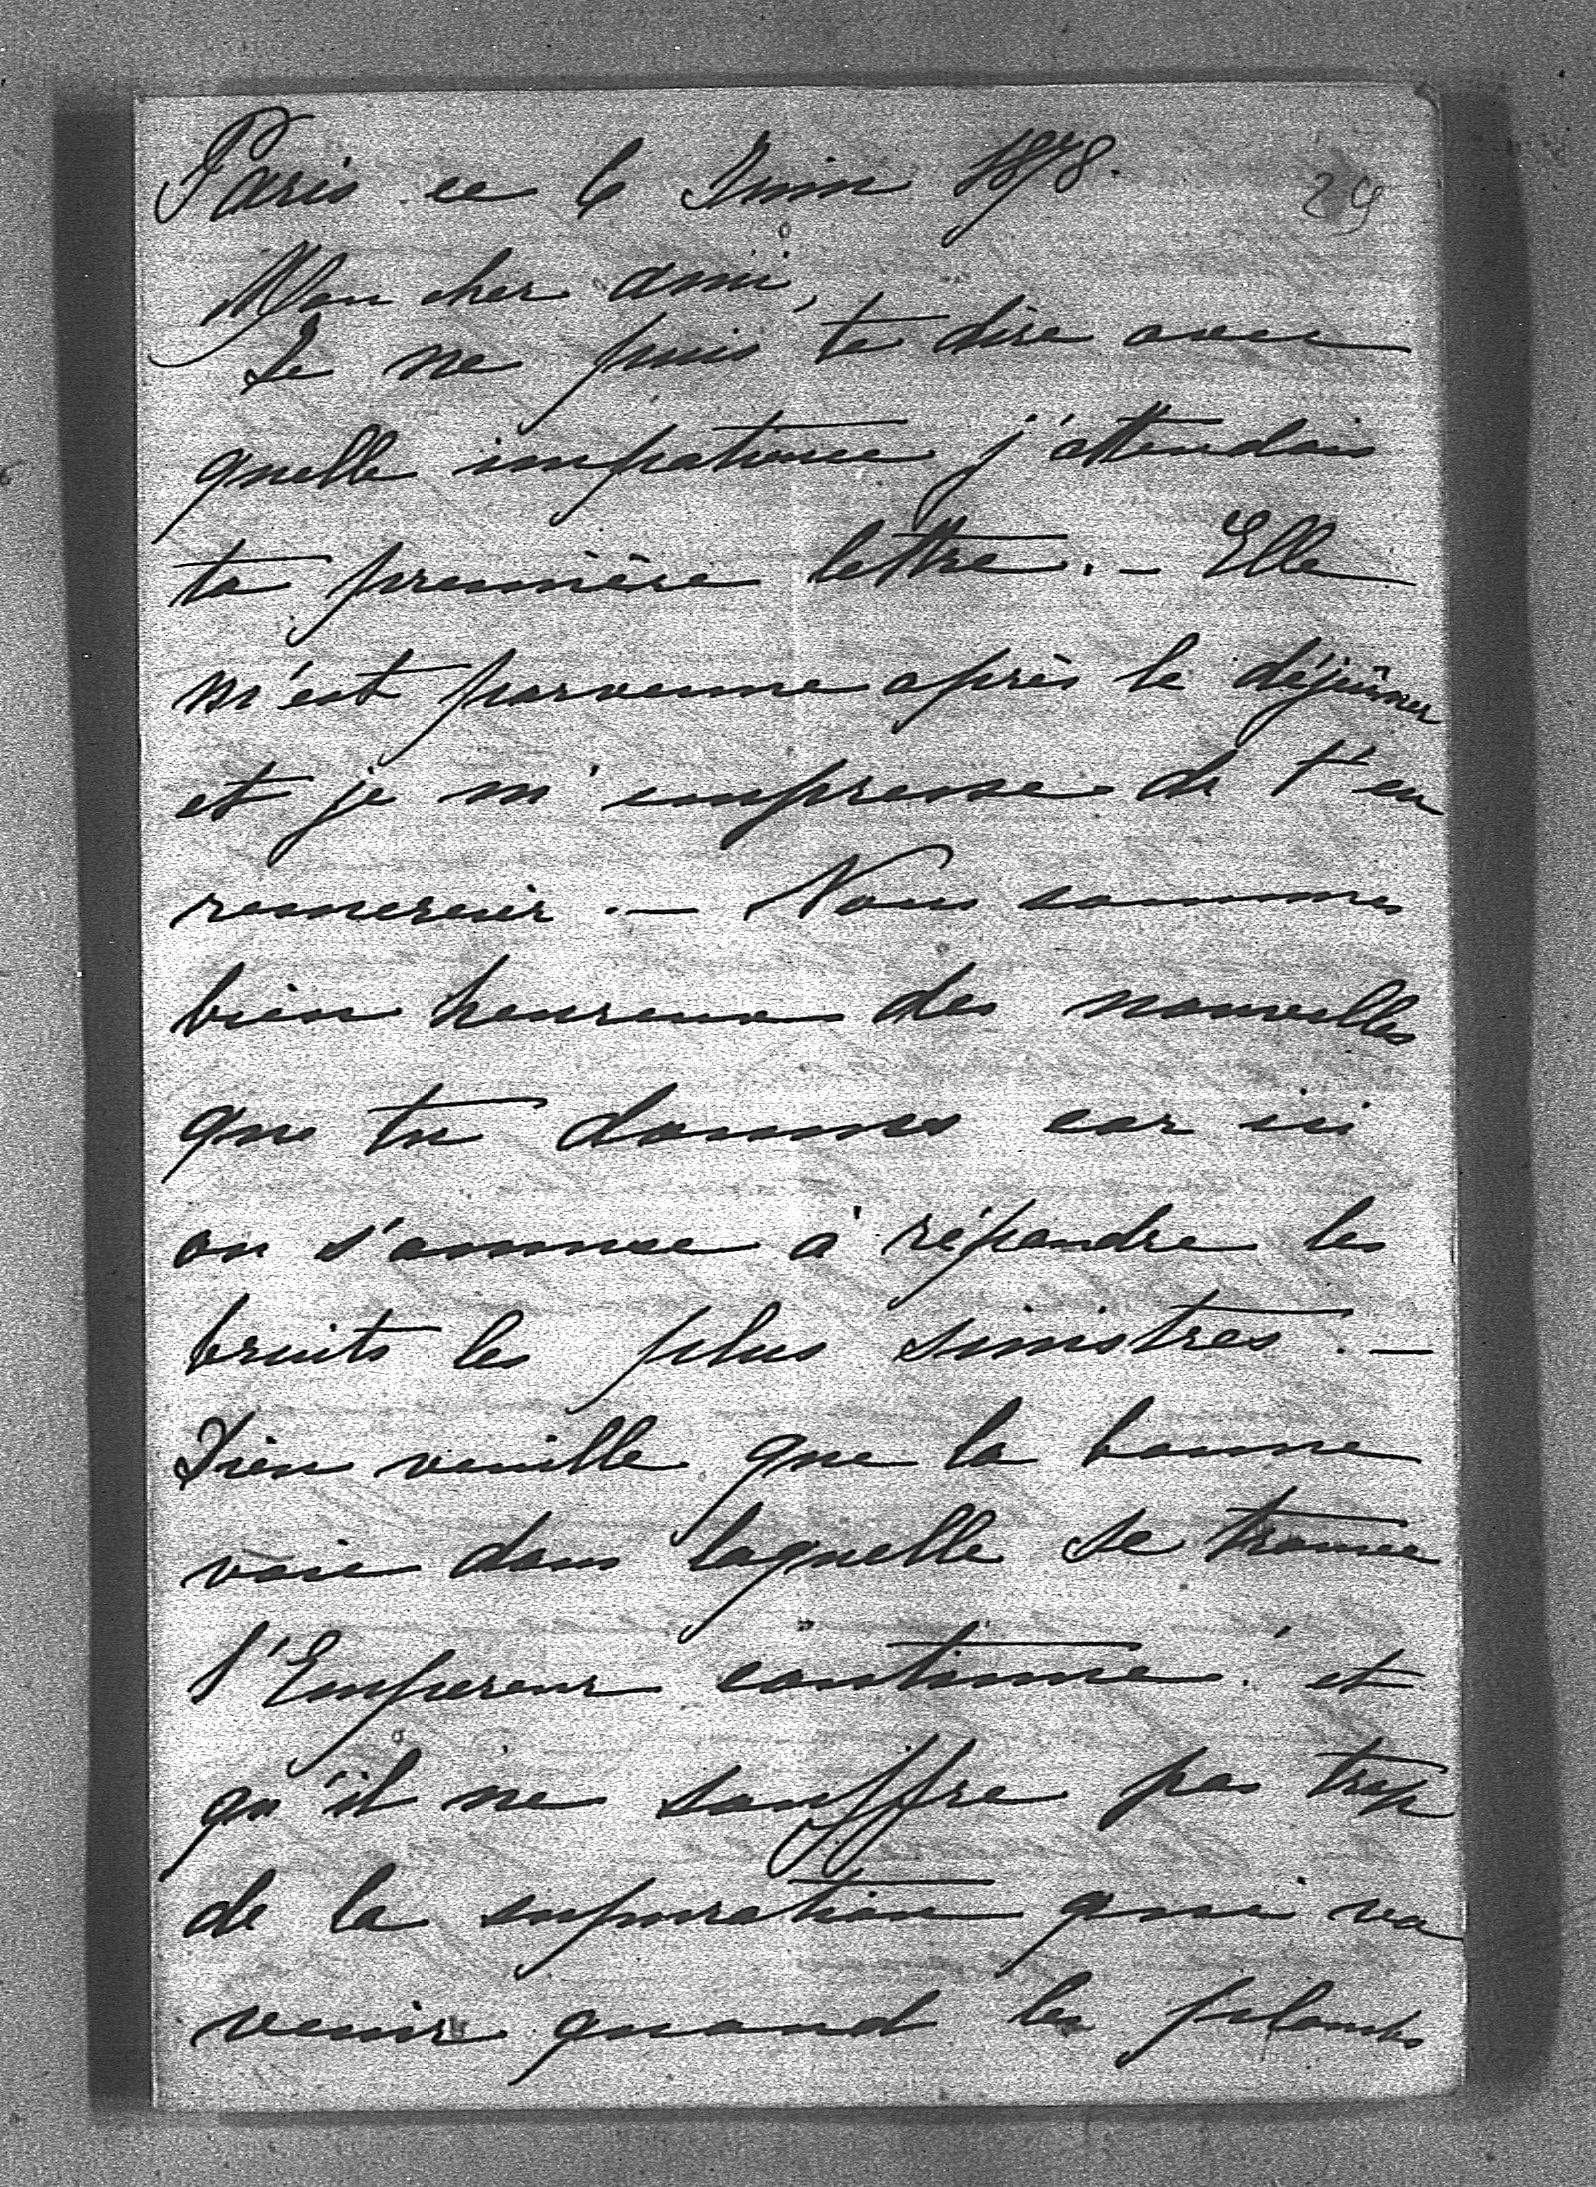 Paris ce 6 Juin 1878.
29
Mon cher ami,
Je ne puis te dire avec
quelle impatience j'attendais
ta première lettre. - Elle
m'est parvenue après le déjeûner
et je m'empresse de t'en
remercier. - Nous sommes
bien heureux des nouvelles
que tu donnes car ici
on s'amuse à répandre les
bruits les plus sinistres. -
Dieu veuille que la bonne
voie dans laquelle se trouve
l'Empereur continue et
qu'il ne souffre pas trop
de la supuration qui va
venir quand les plombs